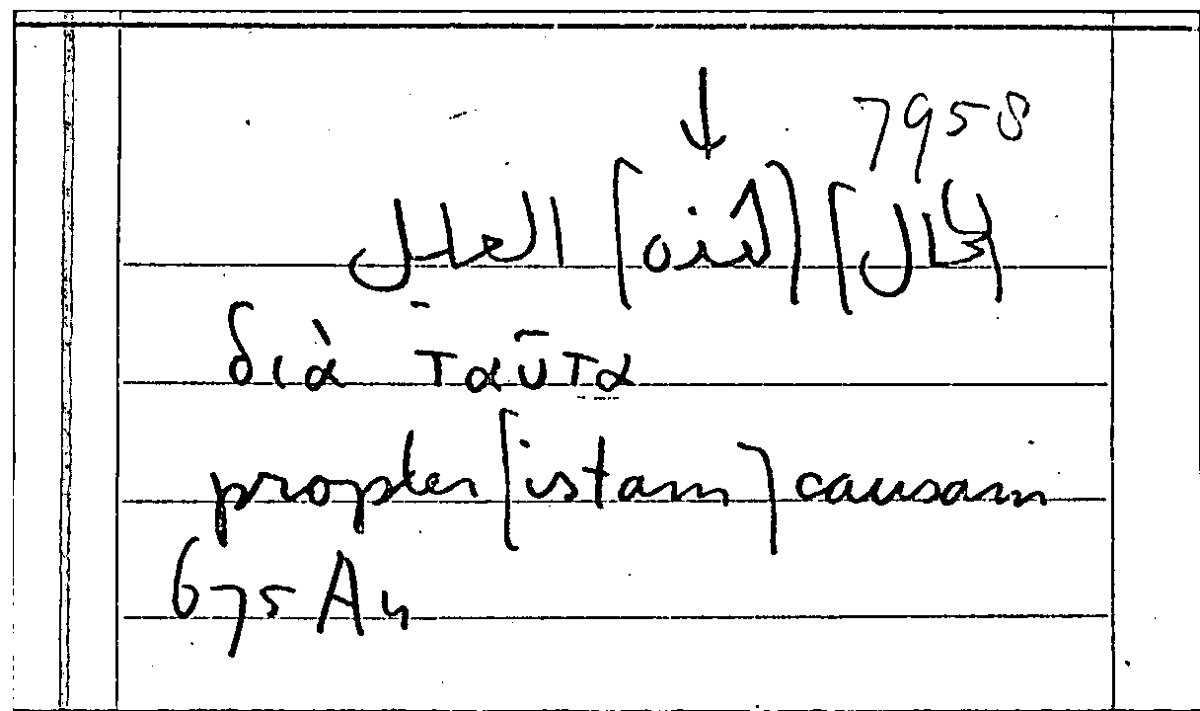 7958
لحال [هذه] العلل
διὰ ταῦτα
propter [istam] causam
675 A4